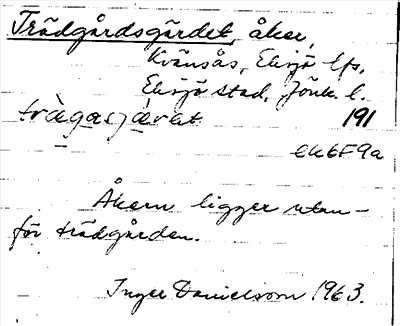 Trädgårdsgärdet, åker,
Kvänsås, Eksjö lfs,
Eksjö stad, Jönk. l.
trägasjäret 191
ek 6F9a
Åkern ligger utan-
för trädgården.
Inger Danielsson 1963.